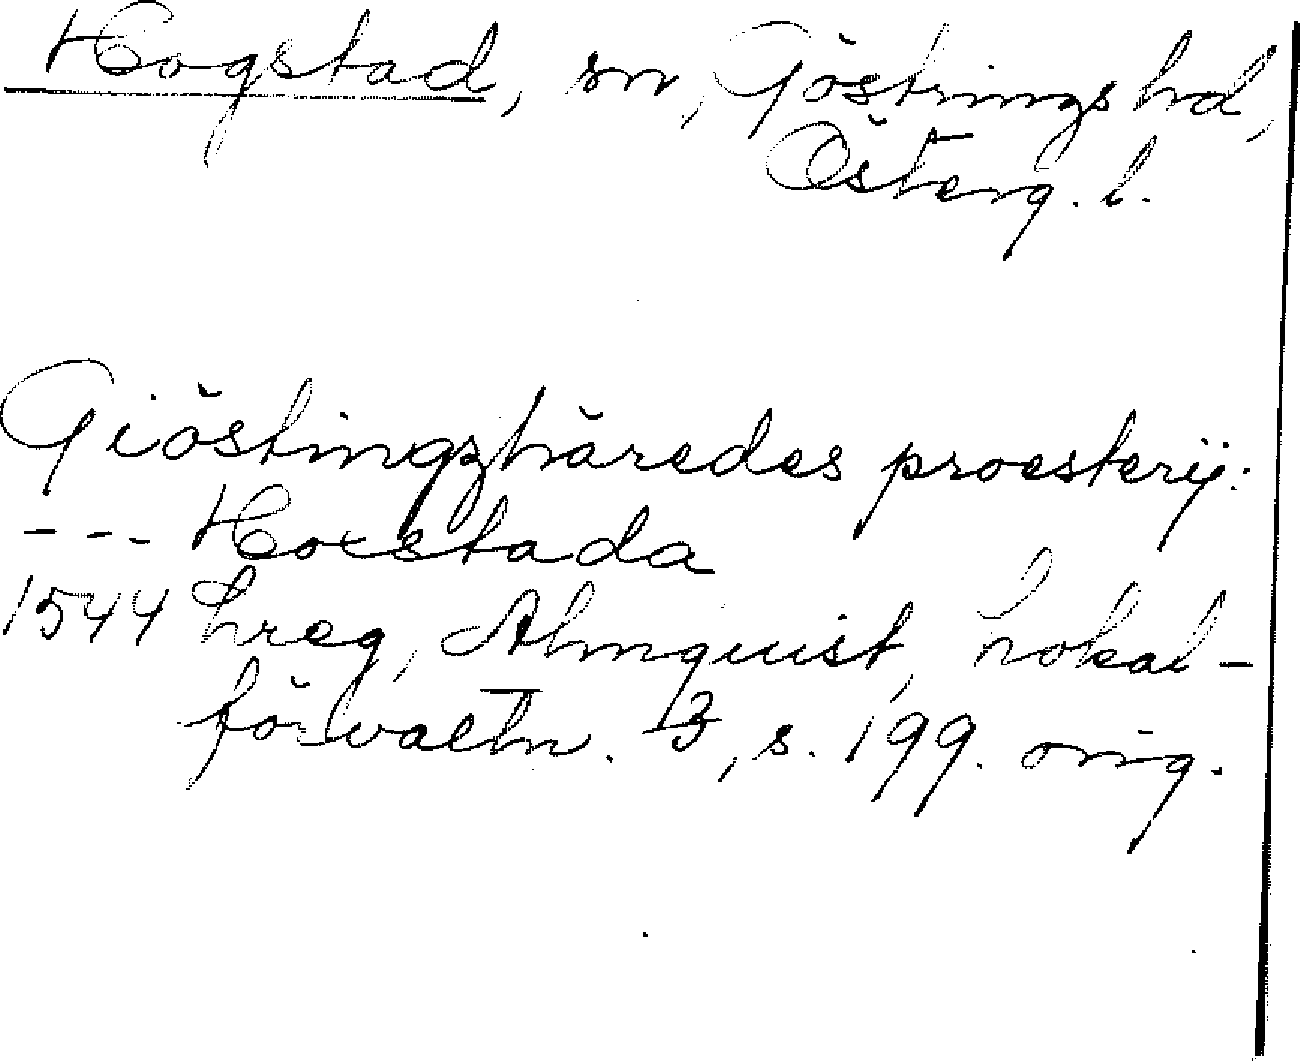 Hogstad, sn, Göstrings hd,
Österg. l.
Giöstingzhäredes proesterij:
--- Hocstada
1544 hreg, Almquist, Lokal-
förvaltn. 3, s. 199. orig.